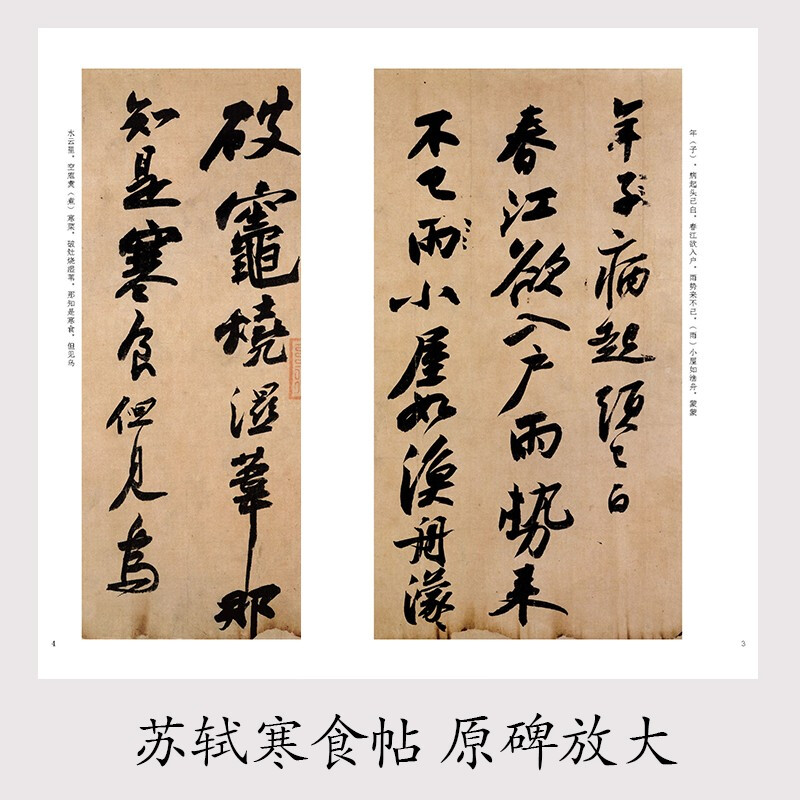 年（子），病起头已白。春江欲入户，雨势来不已。（雨）小屋如渔舟，蒙蒙
年子病起須已白
春江欲入户雨势来
不已雨小屋如渔舟濛〻
3
破竈燒濕葦那
知是寒食但見烏
水云里。空庖煑（煮）寒菜，破灶烧湿苇。那知是寒食，但见乌
4
苏轼寒食帖 原碑放大